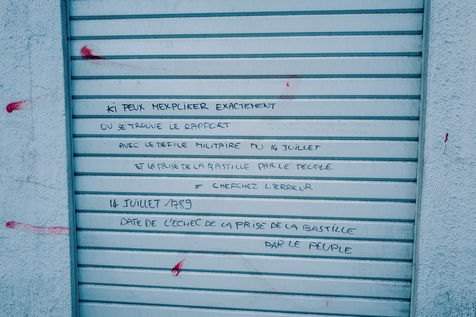 KI PEUX MEXPLIKER EXACTEMENT
OU SE TROUVE LE RAPPORT
AVEC LE DEFILE MILITAIRE DU 14 JUILLET
ET LA PRISE DE LA BASTILLE PAR LE PEUPLE
= CHERCHEZ L'ERREUR
14 JUILLET 1789
DATE DE L'ECHEC DE LA PRISE DE LA BASTILLE
PAR LE PEUPLE